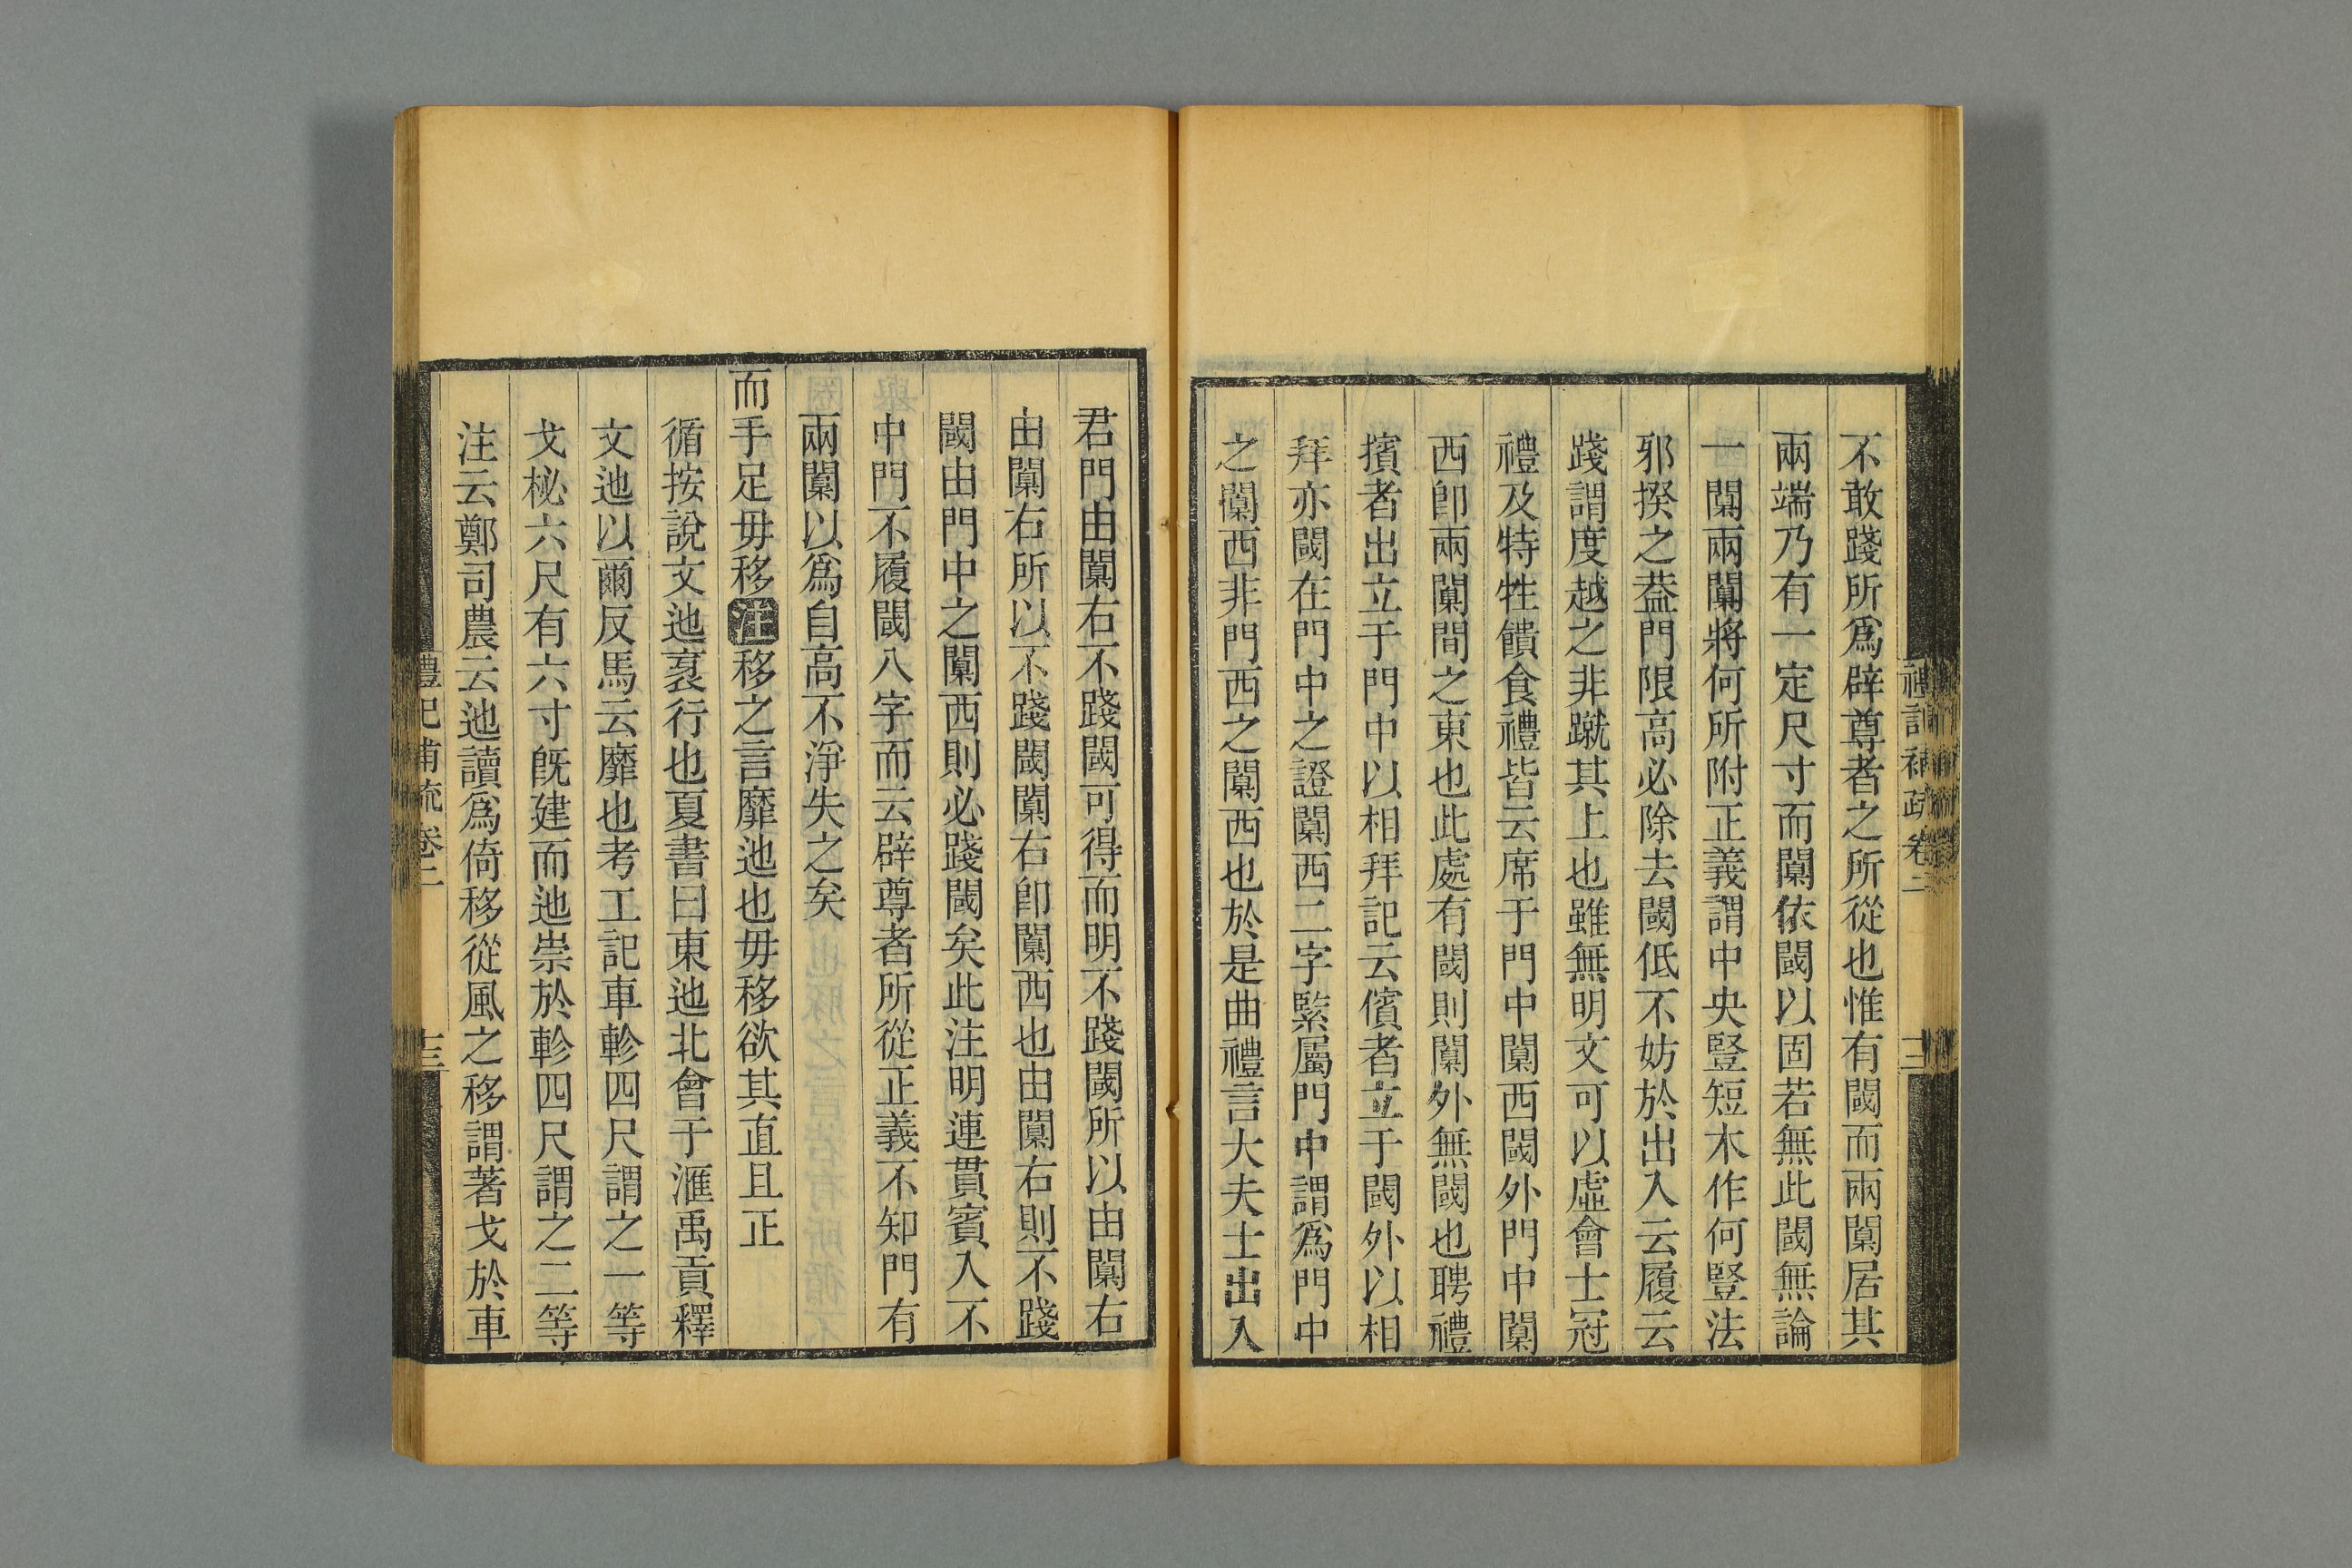 禮記補疏卷二
十二
不敢踐所爲辟尊者之所從也惟有閾而兩闑居其
兩端乃有一定尺寸而闑依閾以固若無此閾無論
一闑兩闑將何所附正義謂中央豎短木作何豎法
邪揆之葢門限高必除去閾低不妨於出入云履云
踐謂度越之非蹴其上也雖無明文可以虛會士冠
禮及特牲饋食禮皆云席于門中闑西閾外門中闑
西卽兩闑間之東也此處有閾則闑外無閾也聘禮
擯者出立于門中以相拜記云儐者立于閾外以相
拜亦閾在門中之證闑西二字緊屬門中謂爲門中
之闑西非門西之闑西也於是曲禮言大夫士出入
君門由闑右不踐閾可得而明不踐閾所以由闑右
由闑右所以不踐閾闑右卽闑西也由闑右則不踐
閾由門中之闑西則必踐閾矣此注明連貫賓入不
中門不履閾八字而云辟尊者所從正義不知門有
兩闑以爲自高不淨失之矣
而手足毋移注移之言靡迆也毋移欲其直且正
循按說文迆衺行也夏書曰東迆北會于滙禹貢釋
文迆以爾反馬云靡也考工記車軫四尺謂之一等
戈柲六尺有六寸旣建而迆崇於軫四尺謂之二等
注云鄭司農云迆讀爲倚移從風之移謂著戈於車
禮記補疏卷二
十三